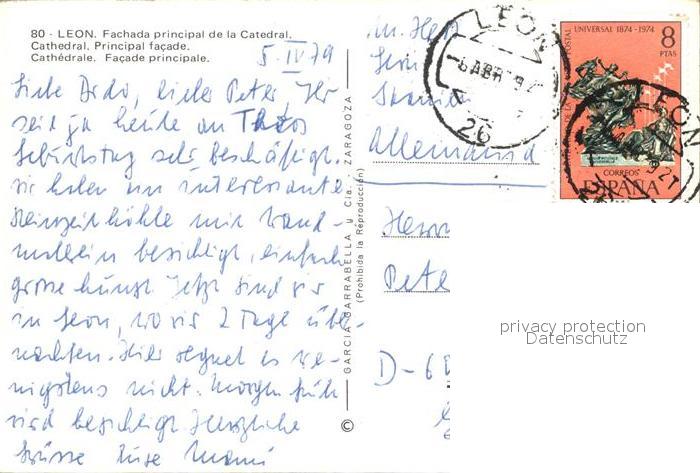 80 - LEON. Fachada principal de la Catedral.
Cathedral. Principal façade.
Cathédrale. Façade principale.
5. IV 79
Liebe Ardo, lieber Peter, Ihr
seid ja heute an Theos
Geburtstag sehr beschäftigt.
Wir haben eine interessante
Steinzeithöhle mit Wand-
malerein besichtigt, einfach
grosse Kunst. Jetzt sind wir
in Leon, wo wir 2 Tage über-
nachten. Hier regnet es we-
nigstens nicht. Morgen früh
wird besichtigt. Herzliche
Grüsse Eure Mami
GARCIA GARRABELLA y Cia. - ZARAGOZA
(Prohibida la Reproducción)
©
Allemania
Herrn
Pete
D-6
LEON
26
UNIVERSAL 1874-1974
8
PTAS
CORREOS
ESPAÑA
LEON
privacy protection
Datenschutz